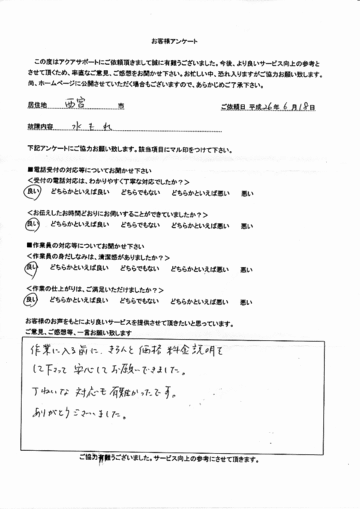 お客様アンケート
この度はアクアサポートにご依頼頂きまして誠に有難うございました。今後、より良いサービス向上の参考と
させて頂くため、率直なご意見、ご感想をお聞かせ下さい。お忙しい中、恐れ入りますがご協力お願い致します。
尚、ホームページに公開させていただく場合もございますので、あらかじめご了承下さい。
居住地 西宮 市 ご依頼日 平成26年6月18日
故障内容 水もれ
下記アンケートにご協力お願い致します。該当項目にマル印をつけて下さい。
■電話受付の対応等についてお聞かせ下さい
<受付の電話対応は、わかりやすく丁寧な対応でしたか？>
良い どちらかといえば良い どちらでもない どちらかといえば悪い 悪い
<お伝えしたお時間どおりにお伺いすることができていましたか？>
良い どちらかといえば良い どちらでもない どちらかといえば悪い 悪い
■作業員の対応等についてお聞かせ下さい
<作業員の身だしなみは、清潔感がありましたか？>
良い どちらかといえば良い どちらでもない どちらかといえば悪い 悪い
<作業の仕上がりは、ご満足いただけましたか？>
良い どちらかといえば良い どちらでもない どちらかといえば悪い 悪い
お客様のお声をもとにより良いサービスを提供させて頂きたいと思っています。
ご意見、ご感想等、一言お願い致します
作業に入る前に、きちんと価格 料金説明を
して下さって 安心してお願いできました。
ていねいな 対応も有難かったです。
ありがとうございました。
ご協力有難うございました。サービス向上の参考にさせて頂きます。